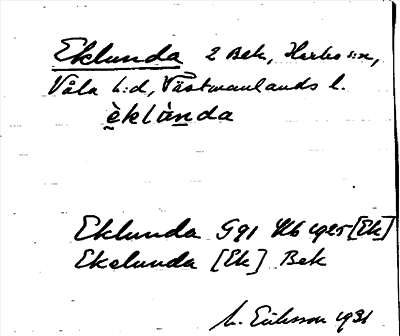 Eklunda 2 Bek, Harbo s:n,
Våla h:d, Västmanlands l.
èklànda
Eklunda Gg1 Kb 1925 [Ek]
Ekelunda [Ek] Bek
Eriksson 1931